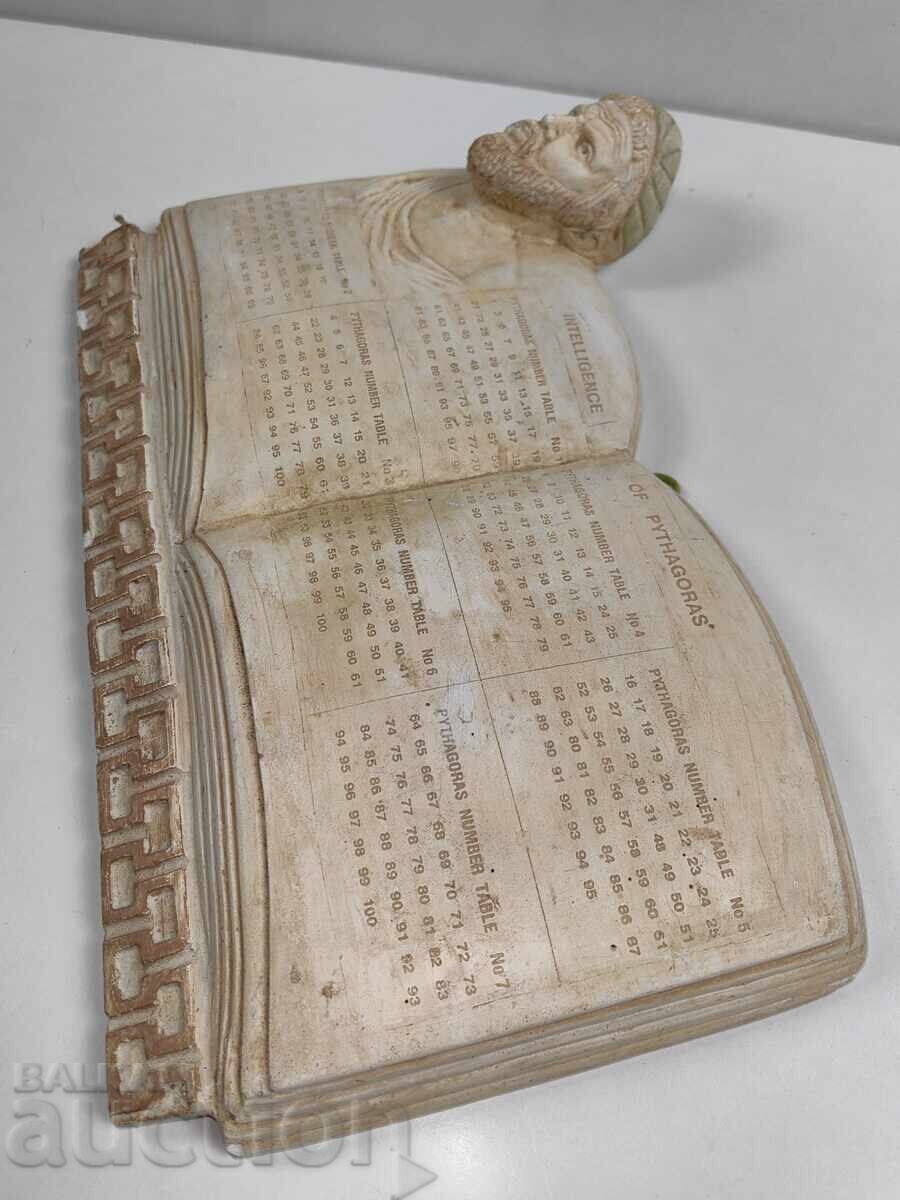 INTELLIGENCE
OF PYTHAGORAS
PYTHAGORAS NUMBER TABLE No 1
3 5 7 9 11 13 15 17 19
21 23 25 27 29 31 33 35 37 39
41 43 45 47 49 51 53 55 57 59
61 63 65 67 69 71 73 75 77 79
81 83 85 87 89 91 93 95 97 99
TABLE No 2
PYTHAGORAS NUMBER TABLE No 3
4 5 6 7 12 13 14 15 20 21
22 23 28 29 30 31 36 37 38 39
44 45 46 47 52 53 54 55 60 61
62 63 68 69 70 71 76 77 78 79
84 85 86 87 92 93 94 95 100
PYTHAGORAS NUMBER TABLE No 4
9 10 11 12 13 14 15 24 25
26 27 28 29 30 31 40 41 42 43
45 46 47 56 57 58 59 60 61
63 72 73 74 75 76 77 78 79
89 90 91 92 93 94 95
PYTHAGORAS NUMBER TABLE No 5
16 17 18 19 20 21 22 23 24 25
26 27 28 29 30 31 48 49 50 51
52 53 54 55 56 57 58 59 60 61
62 63 80 81 82 83 84 85 86 87
88 89 90 91 92 93 94 95
PYTHAGORAS NUMBER TABLE No 6
33 34 35 36 37 38 39 40 41
43 44 45 46 47 48 49 50 51
53 54 55 56 57 58 59 60 61
63 96 97 98 99 100
PYTHAGORAS NUMBER TABLE No 7
64 65 66 67 68 69 70 71 72 73
74 75 76 77 78 79 80 81 82 83
84 85 86 87 88 89 90 91 92 93
94 95 96 97 98 99 100
BALKAN
auction